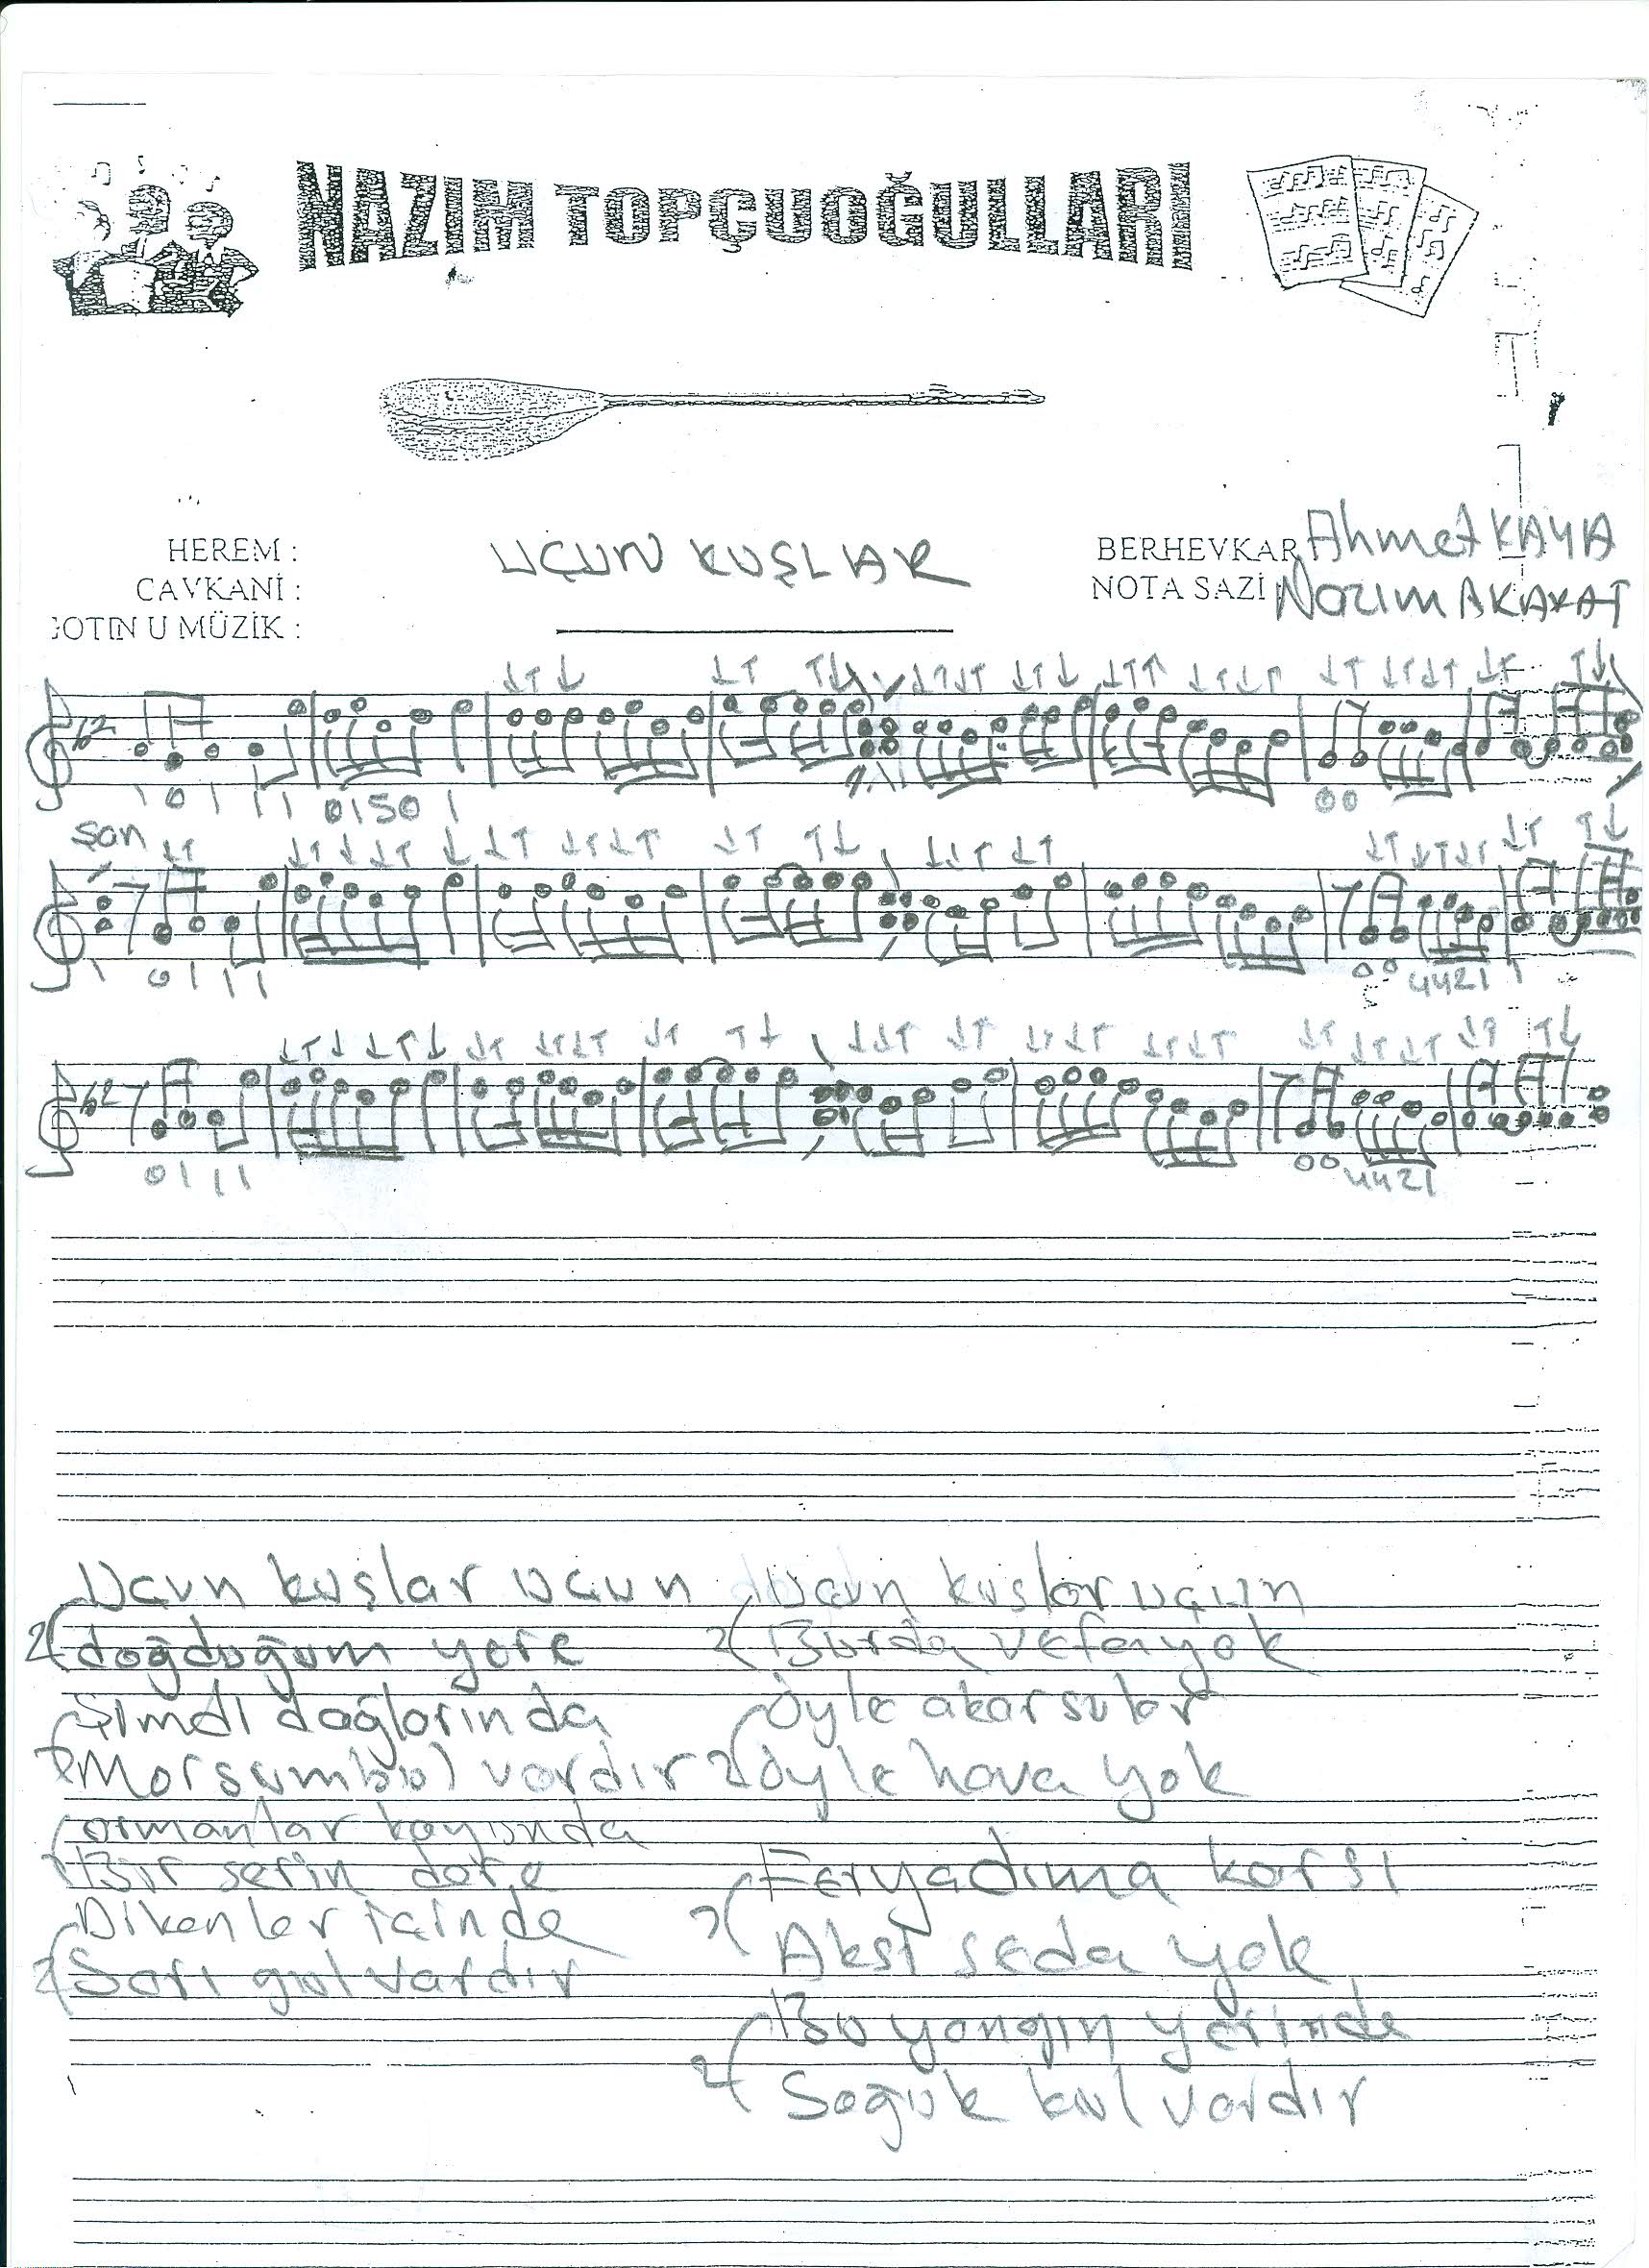 NAZIM TOPÇUOĞULLARI
HEREM :
CAVKANİ :
GOTIN U MÜZİK :
UÇUN KUŞLAR
BERHEVKAR Ahmet KAYA
NOTA SAZİ : Nazım AKAKAT
1 0 1 1 1 0150 1
00
şan
1 0 1 1 1
00 4421 1
0 1 1 1
00 4421
Uçun kuşlar uçun
2( doğduğum yere
Şimdi dağlarında
2( Morsümbül vardır
ormanlar koyunda
2( Bir serin dere
Dikenler içinde
2( Sarı gül vardır
Uçun kuşlar uçun
2( Burda vefa yok
öyle akar sular
2( öyle hava yok
Feryadıma karsı
2( Aksi seda yok
Bu yangın yerinde
2( Soğuk kül vardır